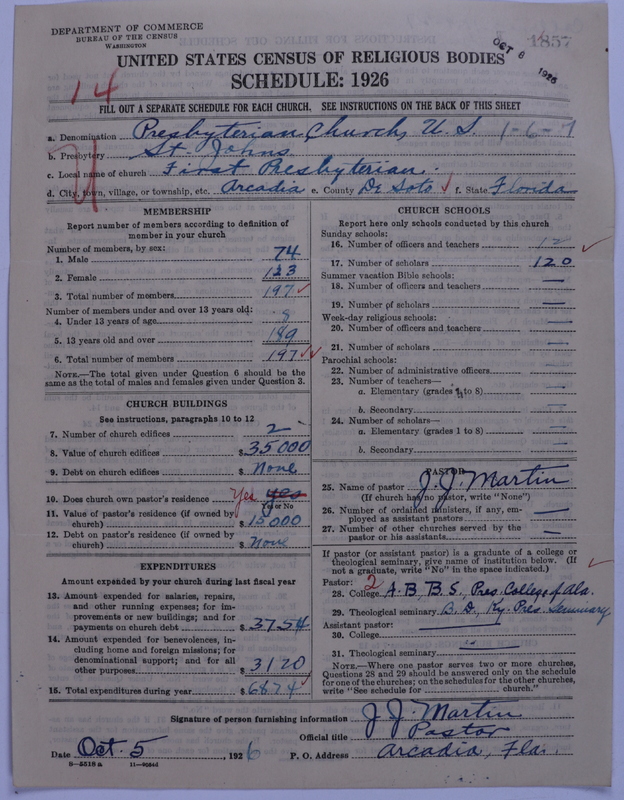 DEPARTMENT OF COMMERCE
BUREAU OF THE CENSUS
WASHINGTON
OCT 6 1926
1857
UNITED STATES CENSUS OF RELIGIOUS BODIES
SCHEDULE: 1926
14
FILL OUT A SEPARATE SCHEDULE FOR EACH CHURCH. SEE INSTRUCTIONS ON THE BACK OF THIS SHEET
a. Denomination Presbyterian Church, U. S. 1-6-7
b. Presbytery St. Johns
c. Local name of church First Presbyterian.
d. City, town, village, or township, etc. Arcadia e. County De Soto f. State Florida
MEMBERSHIP
Report number of members according to definition of
member in your church
Number of members, by sex:
1. Male 74
2. Female 123
3. Total number of members 197
Number of members under and over 13 years old:
4. Under 13 years of age 8
5. 13 years old and over 189
6. Total number of members 197
NOTE.—The total given under Question 6 should be
same as the total of males and females given under Question 3.
CHURCH BUILDINGS
See instructions, paragraphs 10 to 12
7. Number of church edifices 2
8. Value of church edifices $35000
9. Debt on church edifices $None
10. Does church own pastor's residence Yes yes
Yes or No
11. Value of pastor's residence (if owned by
church) $15000
12. Debt on pastor's residence (if owned by
church) $None
EXPENDITURES
Amount expended by your church during last fiscal year
13. Amount expended for salaries, repairs,
and other running expenses; for im-
provements or new buildings; and for
payments on church debt $3754
14. Amount expended for benevolences, in-
cluding home and foreign missions; for
denominational support; and for all
other purposes $3120
15. Total expenditures during year $6874
CHURCH SCHOOLS
Report here only schools conducted by this church
Sunday schools:
16. Number of officers and teachers 12
17. Number of scholars 120
Summer vacation Bible schools:
18. Number of officers and teachers —
19. Number of scholars —
Week-day religious schools:
20. Number of officers and teachers —
21. Number of scholars —
Parochial schools:
22. Number of administrative officers —
23. Number of teachers—
a. Elementary (grades 1 to 8) —
b. Secondary —
24. Number of scholars—
a. Elementary (grades 1 to 8) —
b. Secondary —
PASTOR
25. Name of pastor J. J. Martin
(If church has no pastor, write "None")
26. Number of ordained ministers, if any, em-
ployed as assistant pastors —
27. Number of other churches served by the
pastor or his assistants —
If pastor (or assistant pastor) is a graduate of a college or
theological seminary, give name of institution below. (If
not a graduate, write "No" in the space indicated.)
Pastor: 2
28. College A. B, B S., Pres. College of Ala.
29. Theological seminary B. D., Ky. Pres. Seminary
Assistant pastor:
30. College —
31. Theological seminary —
NOTE.—Where one pastor serves two or more churches,
Questions 28 and 29 should be answered only on the schedule
for one of the churches; on the schedules for the other churches,
write "See schedule for church."
Signature of person furnishing information J. J. Martin
Official title Pastor
Date Oct. 5, 1926 P. O. Address Arcadia, Fla.
9—5518 a